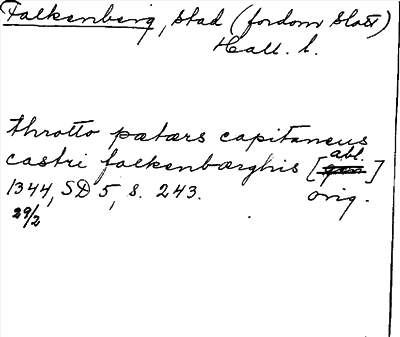 Falkenberg, stad (fordom slott)
Hall. l.
throtto pætærs capitaneus
abl.
castri falkenbærghis [gen]
1344, SD 5, s. 243. orig.
29/2